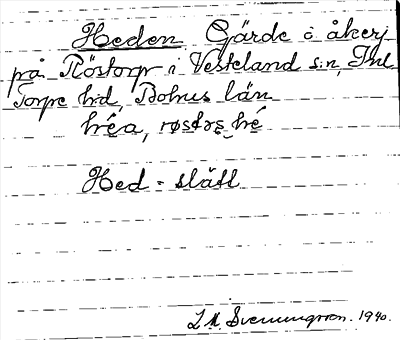 Heden Gärde o åkerj
på Röstorp i Vesteland s:n, Inl
Torpe hd, Bohus län
hé̄a, røstɔrs hé
Hed = slätt
L. M. Svenungsson. 1940.